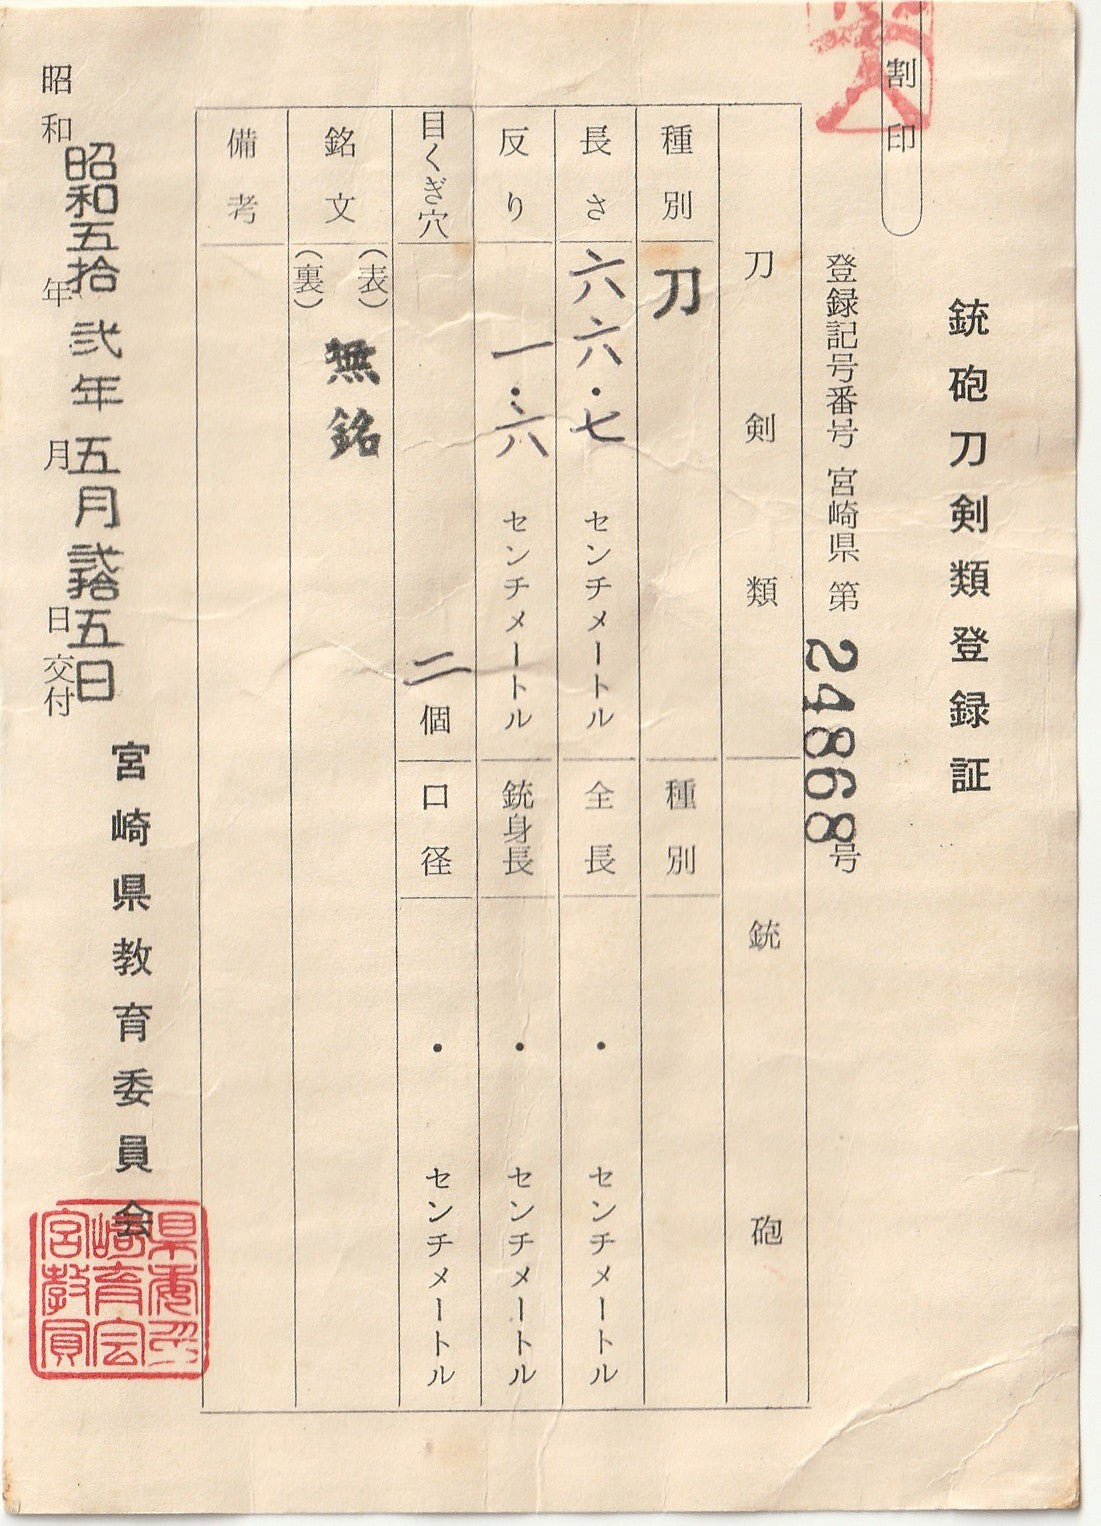 割印
銃砲刀剣類登録証
登録記号番号 宮崎県 第24868号
刀剣類
銃砲
種別 刀
種別
長さ 六六・七 センチメートル
全長 ・ センチメートル
反り 一・六 センチメートル
銃身長 ・ センチメートル
目くぎ穴 二個
口径 ・ センチメートル
銘文 (表) 無銘
(裏)
備考
昭和 年 月 日交付
昭和五拾弐年五月弐拾五日
宮崎県教育委員会